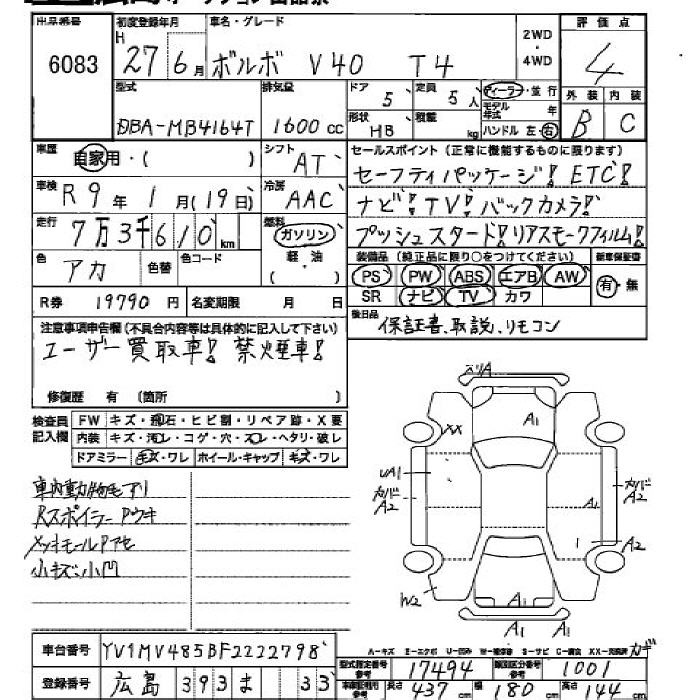 出品番号 6083
初度登録年月 H 27年 6月
車名・グレード ボルボ V40 T4
2WD・4WD
評価点 4
外装 B 内装 C
型式 DBA-MB4164T
排気量 1600cc
ドア 5
定員 5人
形状 HB
積載 kg
ディーラー・並行
モデル年式 年
ハンドル 左・右
車歴 自家用・( )
シフト AT
車検 R9年 1月(19日)
冷房 AAC
走行 7万3千610km
燃料 ガソリン 軽・油 ( )
色 アカ 色替 色コード
R券 19790円 名変期限 月 日
セールスポイント(正常に機能するものに限ります)
セーフティパッケージ! ETC!
ナビ! TV! バックカメラ!
プッシュスタード! リアスモークフィルム!
装備品(純正品に限り○をつけてください) 新車保証書
PS PW ABS エアB AW 有・無
SR ナビ TV カワ
後日品 保証書、取説、リモコン
注意事項申告欄(不具合内容等は具体的に記入して下さい)
ユーザー買取車! 禁煙車!
修復歴 有 (箇所 )
検査員記入欄
FW キズ・飛石・ヒビ割・リペア跡・X要
内装 キズ・汚レ・コゲ・穴・スレ・ヘタリ・破レ
ドアミラー キズ・ワレ ホイール・キャップ キズ・ワレ
車内動物毛アリ
Rスポイラー Pウキ
メッキモール Pアセ
小キズ、小凹
スリA
A1
XX
UA1
カバー A2
カバー A2
A1
A2
W2
A1
A1 A1
カギ
A-キズ E-エクボ U-凹み W-補修跡 S-サビ C-腐食 XX-交換済
車台番号 YV1MV485BF2222798
登録番号 広島 393 ま 33
型式指定番号 17494 類別区分番号 1001
長さ 437cm 幅 180cm 高さ 144cm